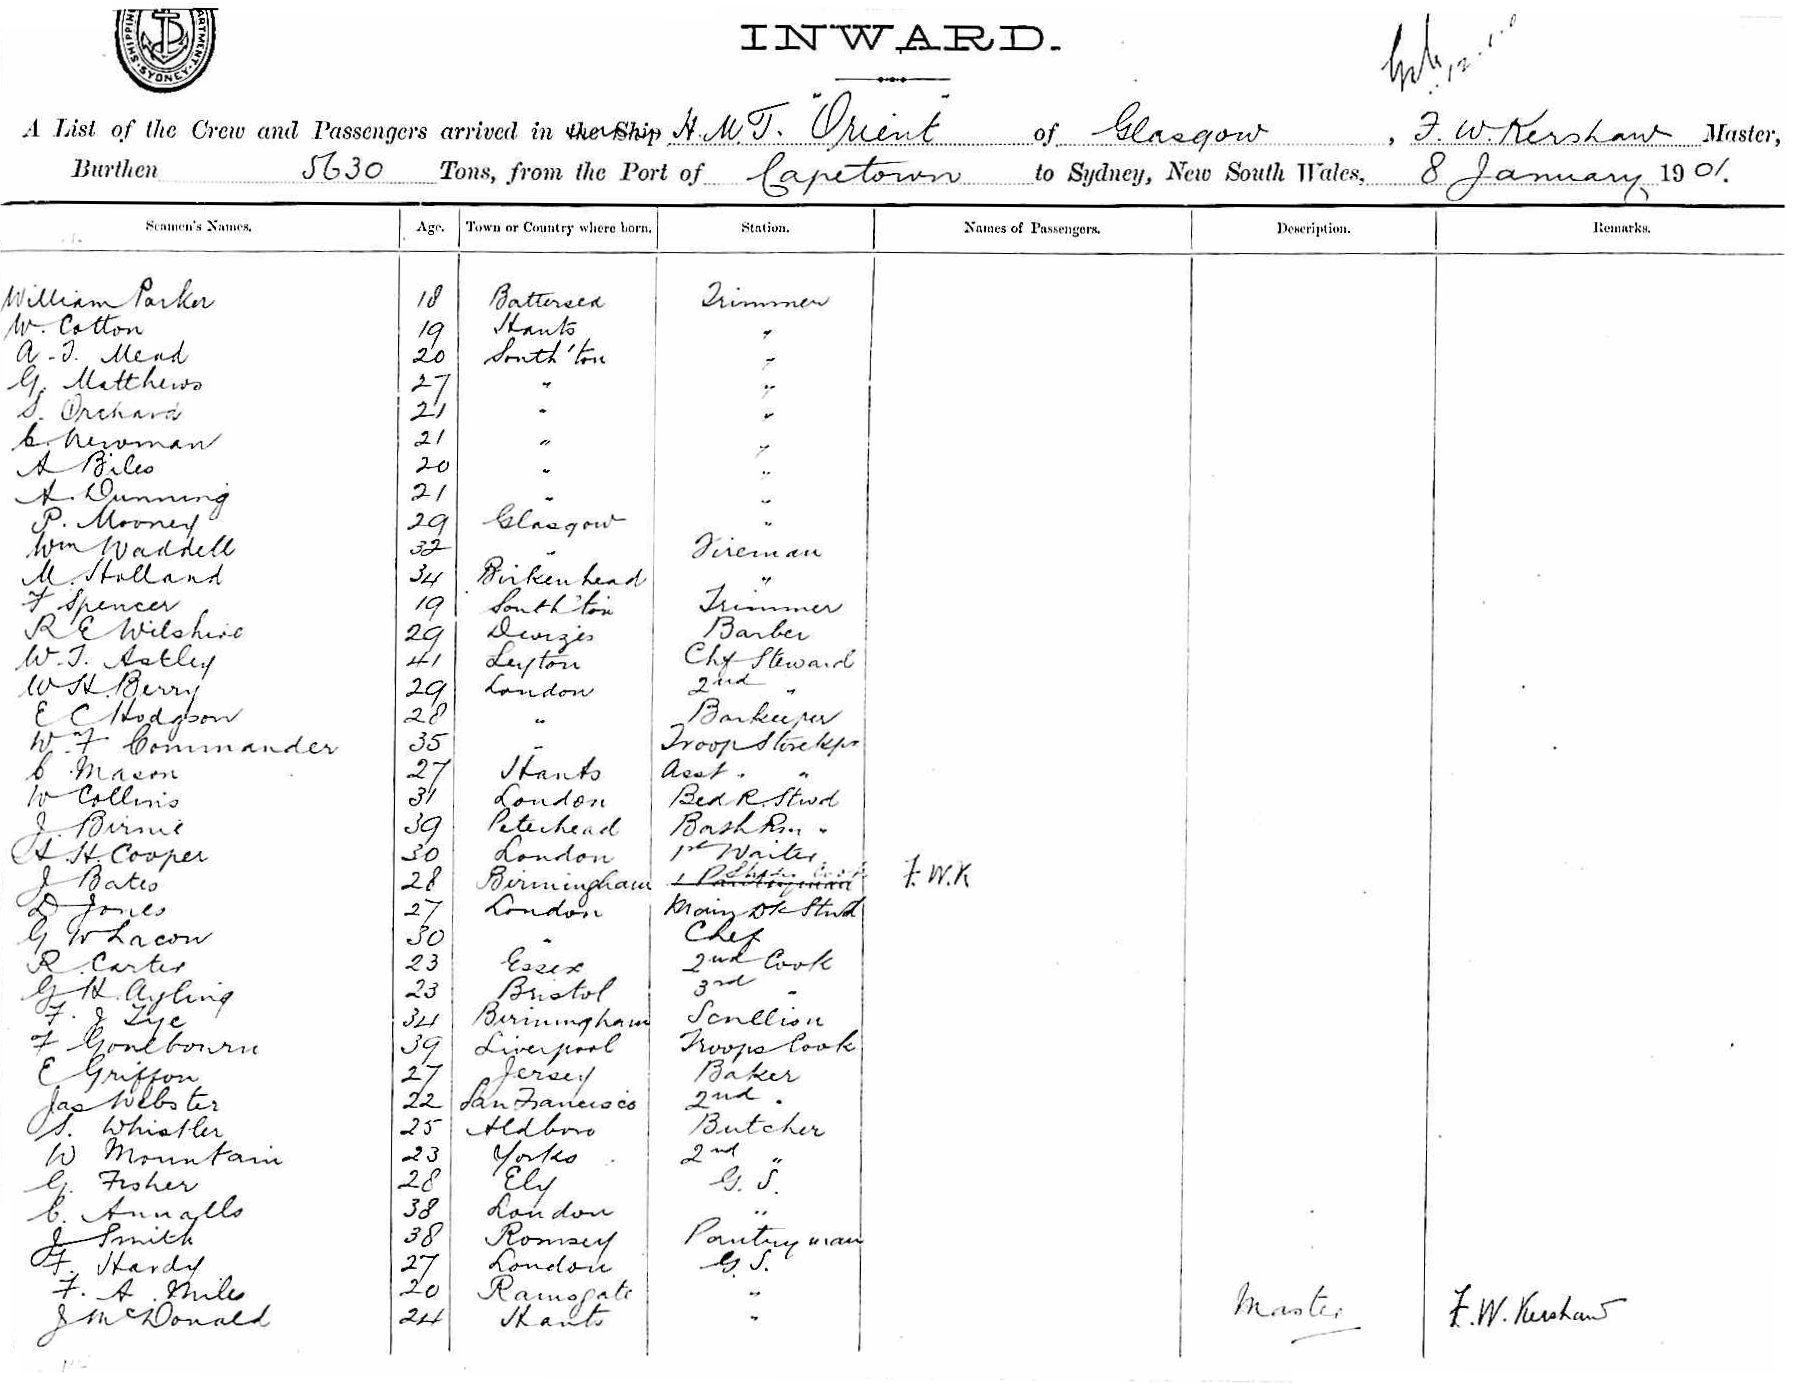 SHIPPING DEPARTMENT. SYDNEY
INWARD.
A List of the Crew and Passengers arrived in the Ship H.M.T. "Orient" of Glasgow, F. W. Kershaw Master,
Burthen 5630 Tons, from the Port of Capetown to Sydney, New South Wales, 8 January 1901.
Seamen's Names. Age. Town or Country where born. Station. Names of Passengers. Description. Remarks.
William Parker 18 Battersea Trimmer
W. Cotton 19 Hants "
A. J. Mead 20 South'ton "
G. Matthews 27 " "
S. Orchard 21 " "
C. Newman 21 " "
A Biles 20 " "
A. Dunning 21 " "
P. Mooney 29 Glasgow "
Wm Waddell 32 " Fireman
M. Holland 34 Birkenhead "
F Spencer 19 South'ton Trimmer
R E Wilshire 29 Devizes Barber
W. T. Astley 41 Leyton Chf Steward
W H. Berry 29 London 2nd "
E C Hodgson 28 " Barkeeper
W. F Commander 35 " Troop Storekpr
C Mason 27 Hants Asst. " "
W Collins 31 London Bed R. Stwd
J. Birnie 39 Peterhead Bath Rm "
H. H. Cooper 30 London 1st Waiter
J Bates 28 Birmingham 1 Pantryman Cook F. W. K
D Jones 27 London Main Dk Stwd
G W Lacon 30 " Chef
R. Carter 23 Essex 2nd Cook
G H. Ayling 23 Bristol 3rd "
F. J Tye 34 Birmingham Scullion
F Gouldbourn 39 Liverpool Troops Cook
E Griffon 27 Jersey Baker
Jas Webster 22 San Francisco 2nd "
S. Whistler 25 Aldboro Butcher
W Mountain 23 Yorks 2nd "
G. Fisher 28 Ely G. S.
C. Annalls 38 London "
J Smith 38 Romsey Pantryman
F. Hardy 27 London G. S.
F. A. Miles 20 Ramsgate "
J McDonald 24 Hants " Master F. W. Kershaw